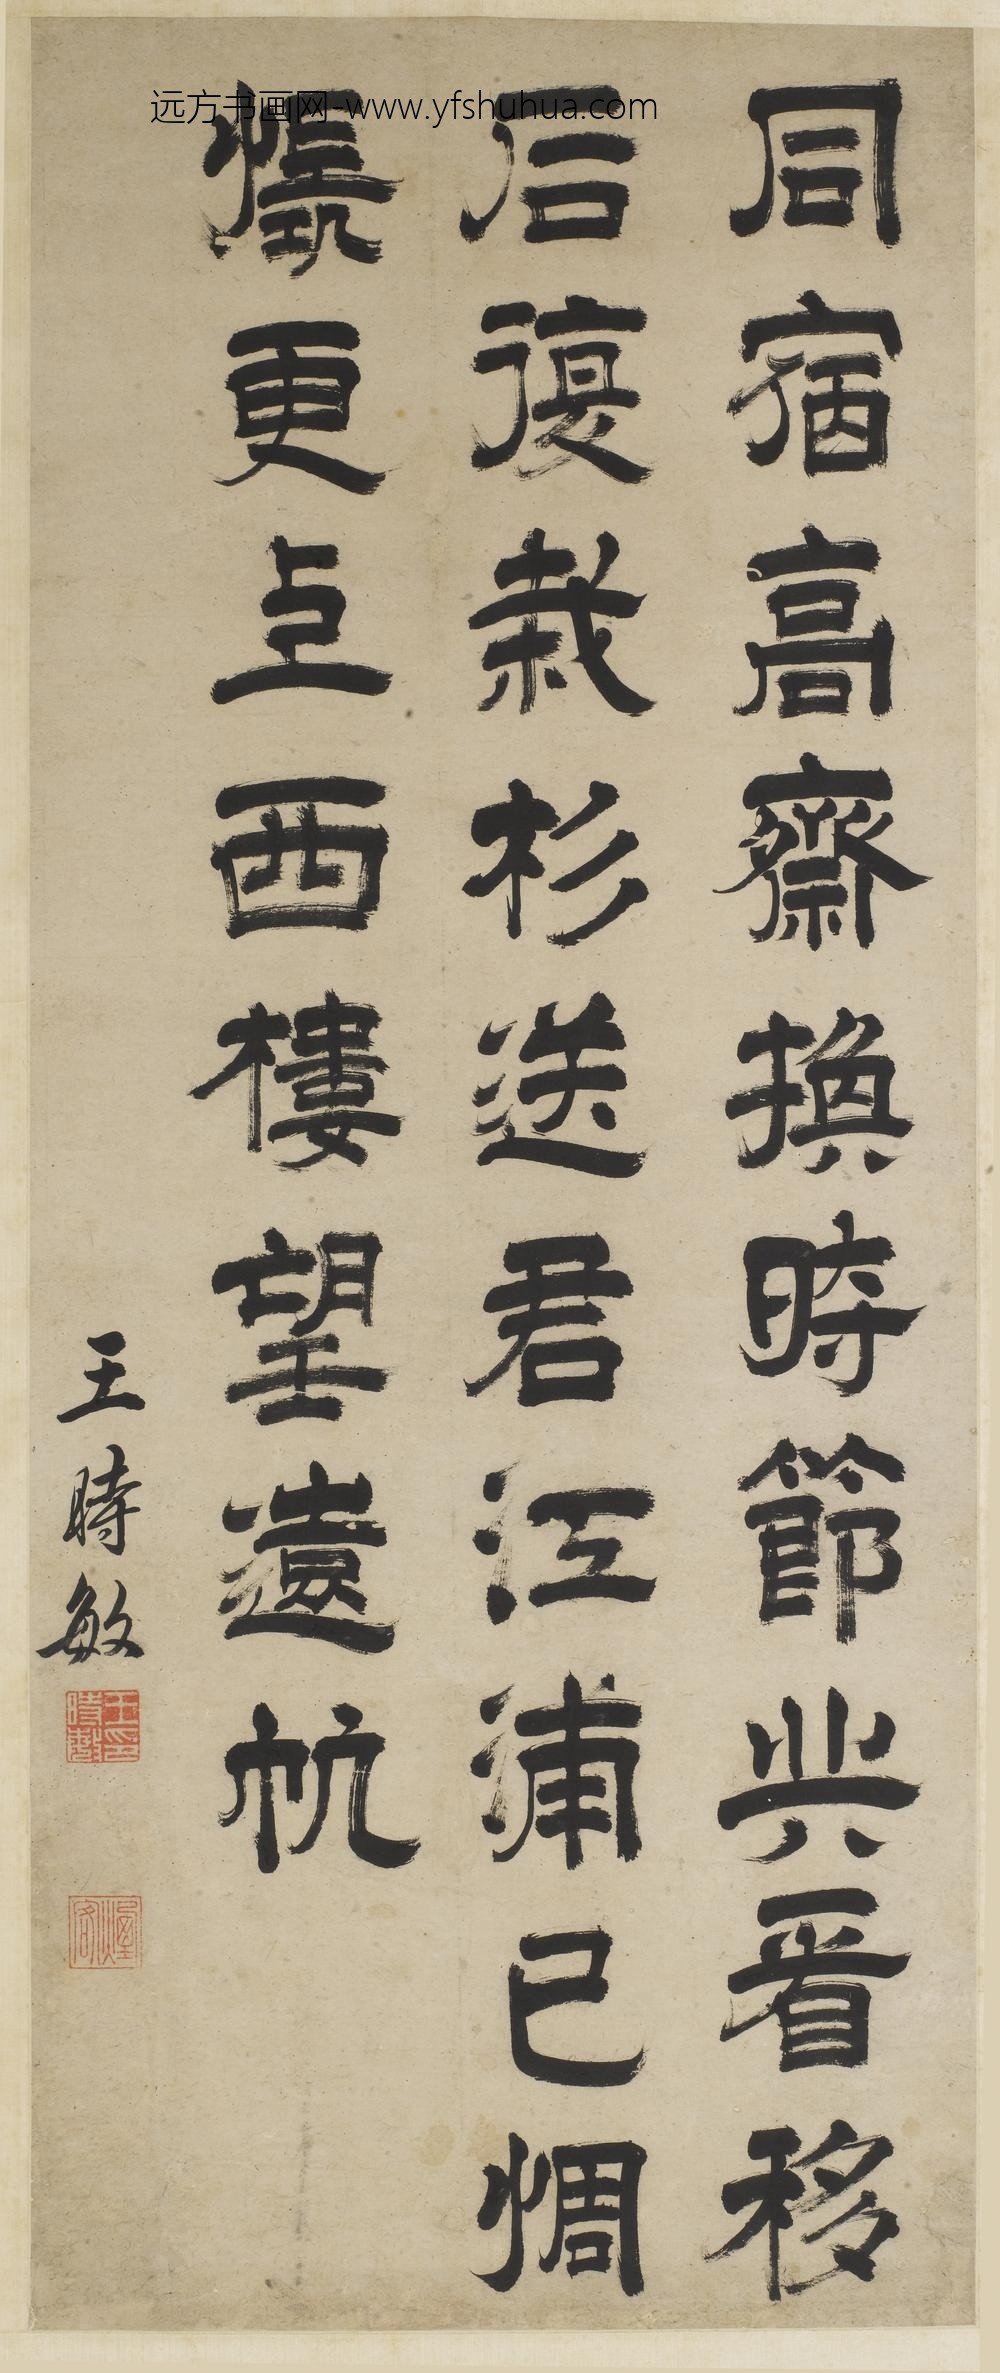 远方书画网-www.yfshuhua.com
同宿高齋換時節共看移
石復栽杉送君江浦已惆
悵更上西樓望遠帆
王時敏
王印時敏
煙客